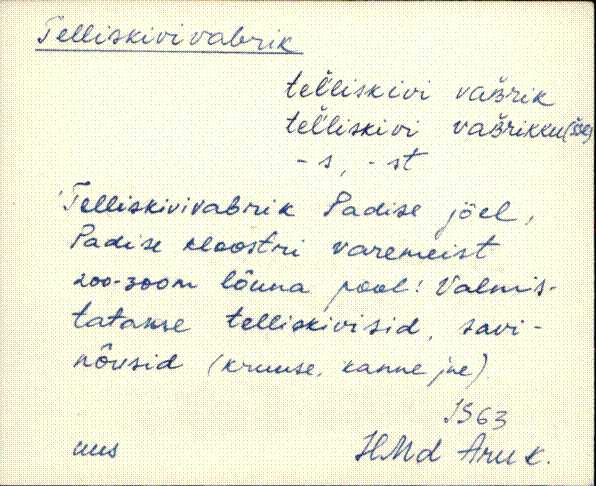 Telliskivivabrik
tel̆liskivi vaʙ̆rik
tel̆liskivi vaʙ̆rikku(sse)
-s, -st
Telliskivivabrik Padise jõel,
Padise kloostri varemeist
200-300m lõuna pool. Valmis-
tatakse telliskivisid, savi-
nõusid (kruuse, kanne jne)
1963
uus HMd Aru k.